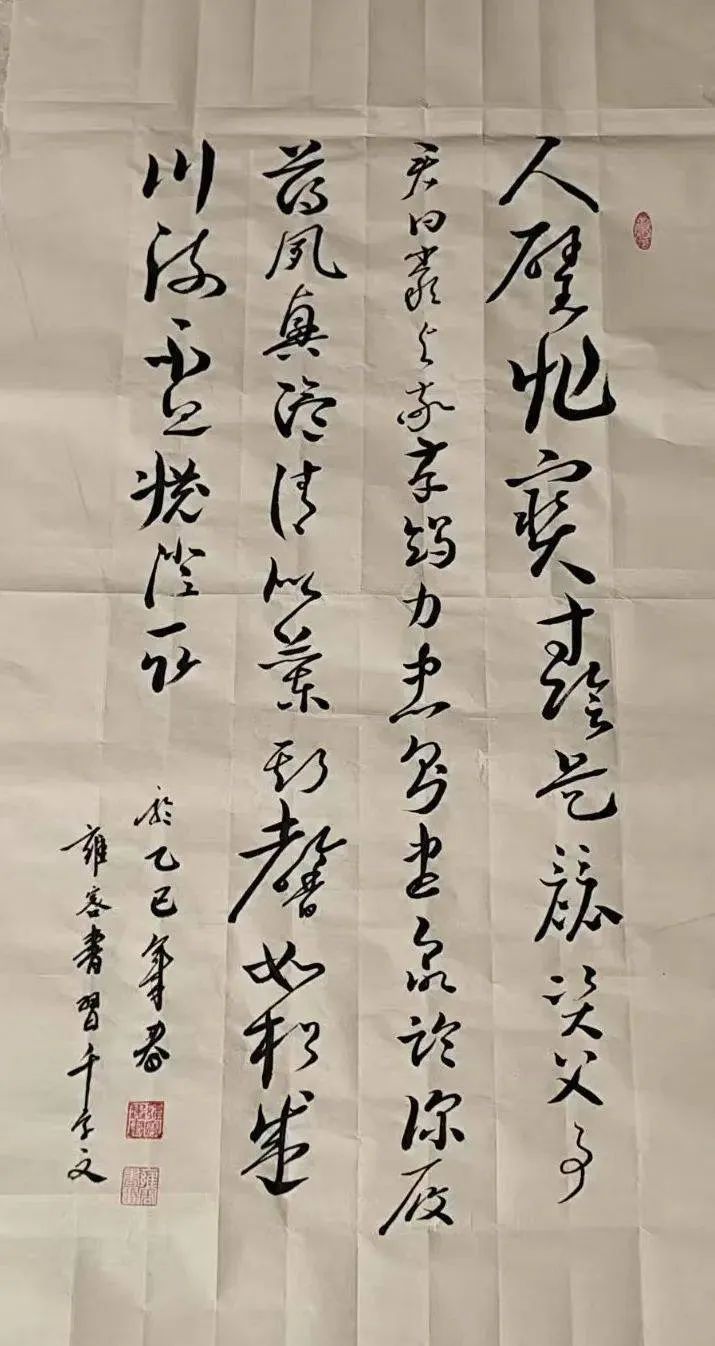 尺璧非寶寸陰是競資父事
君曰嚴與敬孝竭力忠則盡命臨深履
薄夙興溫清似蘭斯馨如松盛
川流不息淵澄取
於乙巳年春
雍客書習千字文